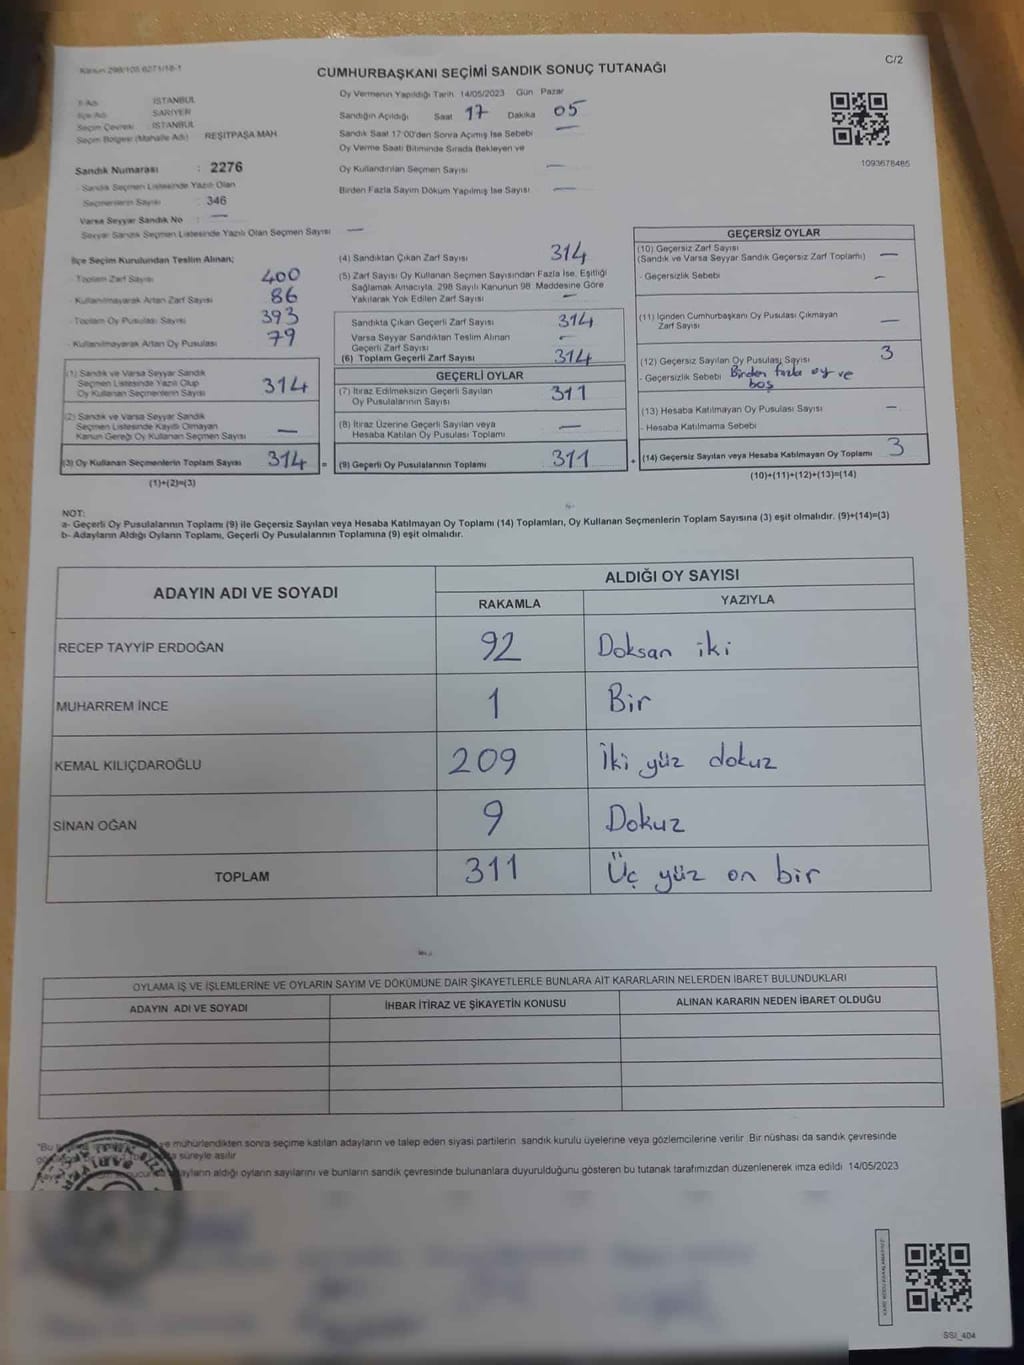 Kanun 298/105 6271/18-1
C/2
CUMHURBAŞKANI SEÇİMİ SANDIK SONUÇ TUTANAĞI
İl Adı : İSTANBUL
İlçe Adı : SARIYER
Seçim Çevresi : İSTANBUL
Seçim Bölgesi (Mahalle Adı) : REŞİTPAŞA MAH.
Sandık Numarası : 2276
- Sandık Seçmen Listesinde Yazılı Olan
Seçmenlerin Sayısı : 346
Varsa Seyyar Sandık No : —
Seyyar Sandık Seçmen Listesinde Yazılı Olan Seçmen Sayısı —
Oy Vermenin Yapıldığı Tarih 14/05/2023 Gün Pazar
Sandığın Açıldığı Saat 17 Dakika 05
Sandık Saat 17:00'den Sonra Açımış İse Sebebi —
Oy Verme Saati Bitiminde Sırada Bekleyen ve
Oy Kullandırılan Seçmen Sayısı —
Birden Fazla Sayım Döküm Yapılmış İse Sayısı —
1093678485
İlçe Seçim Kurulundan Teslim Alınan;
- Toplam Zarf Sayısı 400
- Kullanılmayarak Artan Zarf Sayısı 86
- Toplam Oy Pusulası Sayısı 393
- Kullanılmayarak Artan Oy Pusulası 79
(1) Sandık ve Varsa Seyyar Sandık
Seçmen Listesinde Yazılı Olup
Oy Kullanan Seçmenlerin Sayısı 314
(2) Sandık ve Varsa Seyyar Sandık
Seçmen Listesinde Kayıtlı Olmayan
Kanun Gereği Oy Kullanan Seçmen Sayısı —
(3) Oy Kullanan Seçmenlerin Toplam Sayısı 314 =
(1)+(2)=(3)
(4) Sandıktan Çıkan Zarf Sayısı 314
(5) Zarf Sayısı Oy Kullanan Seçmen Sayısından Fazla İse, Eşitliği
Sağlamak Amacıyla, 298 Sayılı Kanunun 98. Maddesine Göre
Yakılarak Yok Edilen Zarf Sayısı —
Sandıkta Çıkan Geçerli Zarf Sayısı 314
Varsa Seyyar Sandıktan Teslim Alınan
Geçerli Zarf Sayısı —
(6) Toplam Geçerli Zarf Sayısı 314
GEÇERLİ OYLAR
(7) İtiraz Edilmeksizin Geçerli Sayılan
Oy Pusulalarının Sayısı 311
(8) İtiraz Üzerine Geçerli Sayılan veya
Hesaba Katılan Oy Pusulası Toplamı —
(9) Geçerli Oy Pusulalarının Toplamı 311 +
GEÇERSİZ OYLAR
(10) Geçersiz Zarf Sayısı
(Sandık ve Varsa Seyyar Sandık Geçersiz Zarf Toplamı) —
- Geçersizlik Sebebi —
(11) İçinden Cumhurbaşkanı Oy Pusulası Çıkmayan
Zarf Sayısı —
(12) Geçersiz Sayılan Oy Pusulası Sayısı 3
- Geçersizlik Sebebi Birden fazla oy ve
boş
(13) Hesaba Katılmayan Oy Pusulası Sayısı —
- Hesaba Katılmama Sebebi
(14) Geçersiz Sayılan veya Hesaba Katılmayan Oy Toplamı 3
(10)+(11)+(12)+(13)=(14)
NOT:
a- Geçerli Oy Pusulalarının Toplamı (9) ile Geçersiz Sayılan veya Hesaba Katılmayan Oy Toplamı (14) Toplamları, Oy Kullanan Seçmenlerin Toplam Sayısına (3) eşit olmalıdır. (9)+(14)=(3)
b- Adayların Aldığı Oyların Toplamı, Geçerli Oy Pusulalarının Toplamına (9) eşit olmalıdır.
ADAYIN ADI VE SOYADI
ALDIĞI OY SAYISI
RAKAMLA YAZIYLA
RECEP TAYYİP ERDOĞAN 92 Doksan iki
MUHARREM İNCE 1 Bir
KEMAL KILIÇDAROĞLU 209 İki yüz dokuz
SİNAN OĞAN 9 Dokuz
TOPLAM 311 Üç yüz on bir
OYLAMA İŞ VE İŞLEMLERİNE VE OYLARIN SAYIM VE DÖKÜMÜNE DAİR ŞİKAYETLERLE BUNLARA AİT KARARLARIN NELERDEN İBARET BULUNDUKLARI
ADAYIN ADI VE SOYADI İHBAR İTİRAZ VE ŞİKAYETİN KONUSU ALINAN KARARIN NEDEN İBARET OLDUĞU
"Bu ve mühürlendikten sonra seçime katılan adayların ve talep eden siyasi partilerin sandık kurulu üyelerine veya gözlemcilerine verilir. Bir nüshası da sandık çevresinde
süreyle asılır
ayların aldığı oyların sayılarını ve bunların sandık çevresinde bulunanlara duyurulduğunu gösteren bu tutanak tarafımızdan düzenlenerek imza edildi 14/05/2023
SSI_404